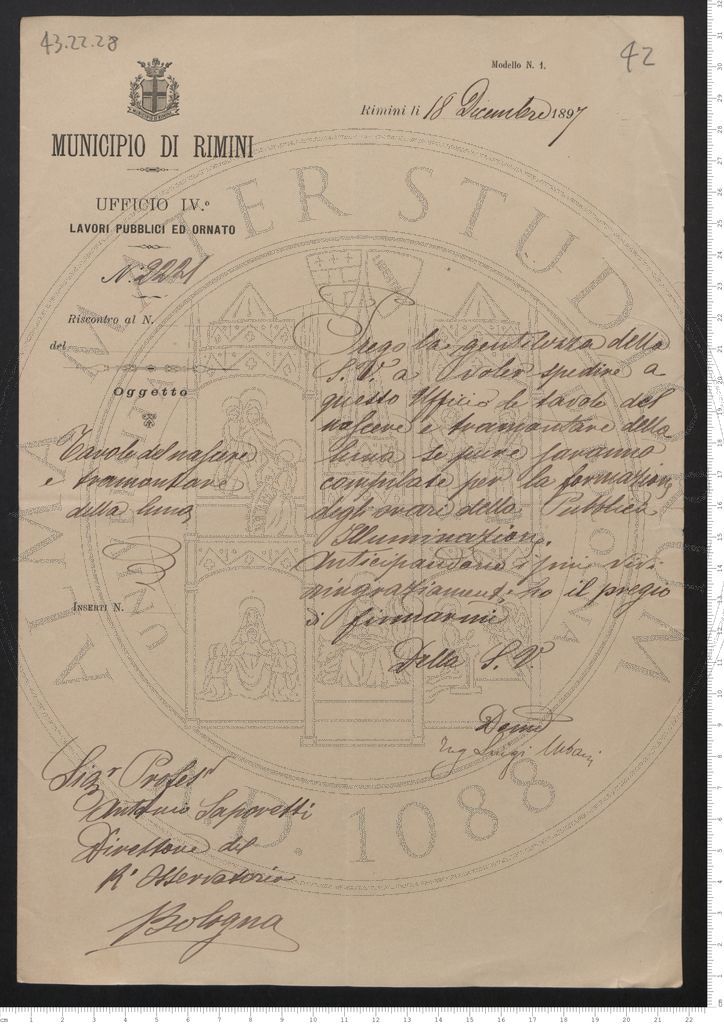 43.22.28
42
Modello N. 1.
Rimini li 18 Dicembre 1897
MUNICIPIO DI RIMINI
UFFICIO IV.º
LAVORI PUBBLICI ED ORNATO
N. 2221
Riscontro al N.
del
Oggetto
Tavole del nascere
e tramontare
della luna
Inserti N.
Prego la gentilezza della
S. V. a voler spedire a
questo Ufficio le tavole del
nascere e tramontare della
luna se pure saranno
compilate per la formazione
degli orari della Pubblica
Illuminazione.
Anticipandone i più vivi
ringraziamenti ho il pregio
di firmarmi
Della S. V.
Ing Luigi Urbani
Sigr Profesr
Antonio Saporetti
Direttore del
R. Osservatorio
Bologna
ALMA MATER STUDIORUM
A.D. 1088